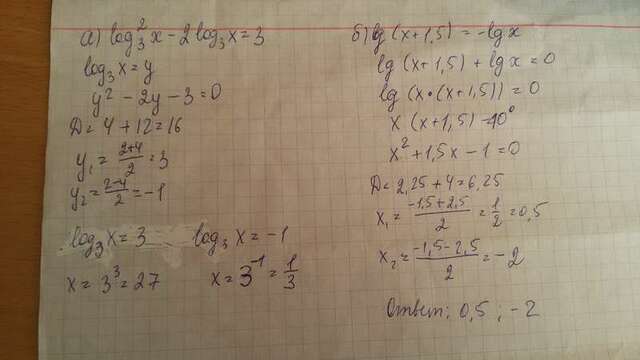 а) log₃² x - 2 log₃ x = 3
log₃ x = y
y² - 2y - 3 = 0
D = 4 + 12 = 16
y₁ = (2+4)/2 = 3
y₂ = (2-4)/2 = -1
log₃ x = 3    log₃ x = -1
x = 3³ = 27    x = 3⁻¹ = 1/3
б) lg (x + 1,5) = -lg x
lg (x + 1,5) + lg x = 0
lg (x • (x + 1,5)) = 0
x (x + 1,5) = 10⁰
x² + 1,5x - 1 = 0
D = 2,25 + 4 = 6,25
x₁ = (-1,5 + 2,5)/2 = 1/2 = 0,5
x₂ = (-1,5 - 2,5)/2 = -2
Ответ: 0,5 ; -2